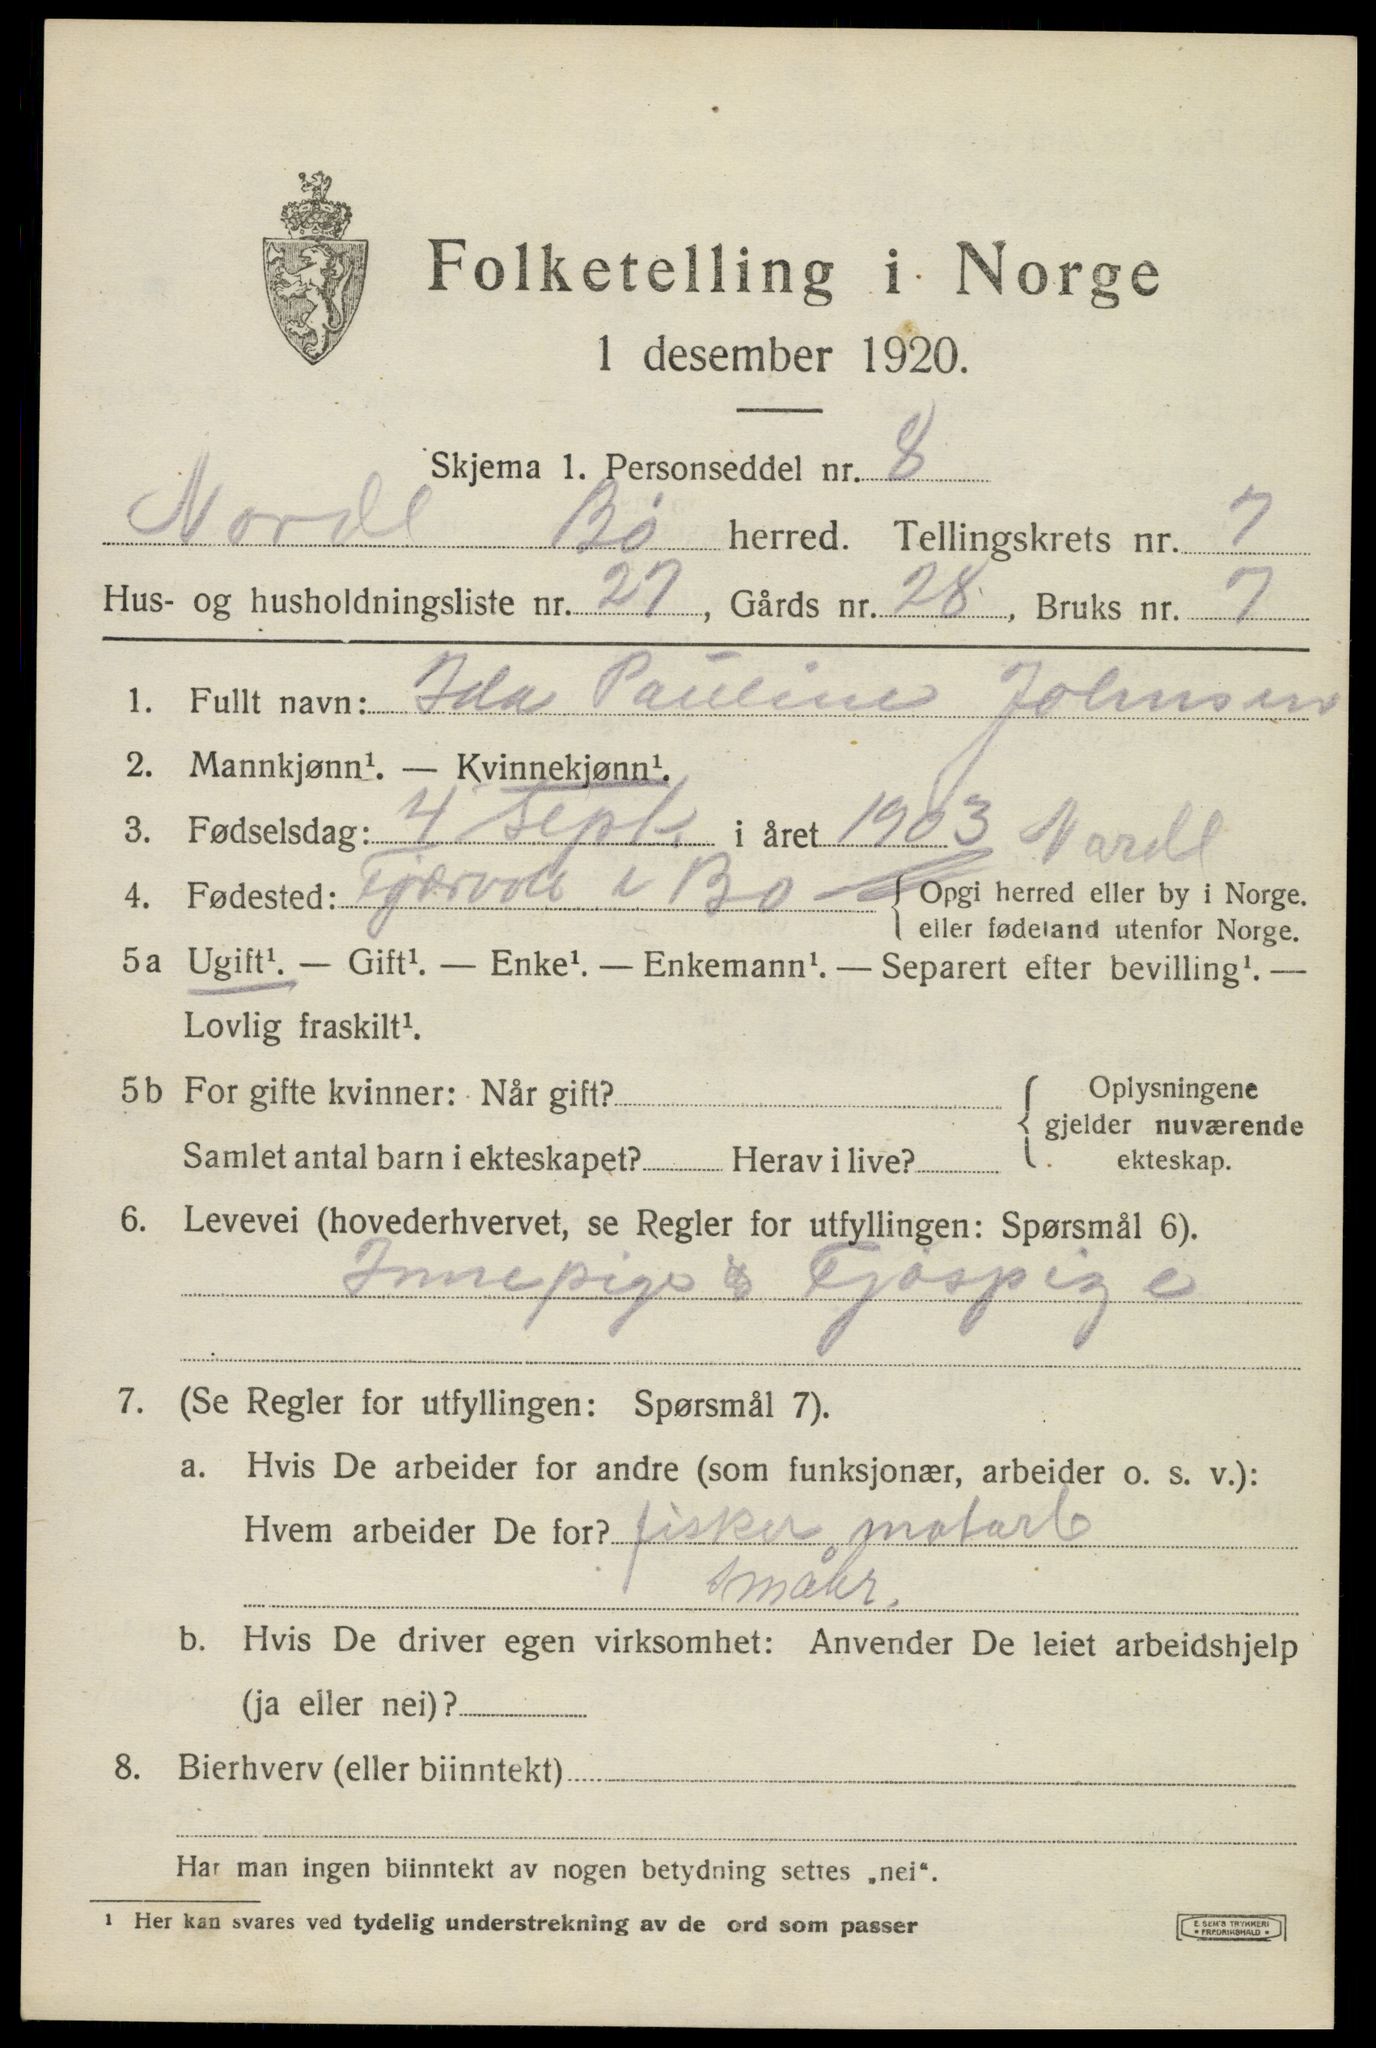 Folketelling i Norge
1 desember 1920.
Skjema 1. Personseddel nr. 8
Nordl Bø herred. Tellingskrets nr. 7
Hus- og husholdningsliste nr. 27, Gårds nr. 28, Bruks nr. 7
1. Fullt navn: Ida Pauline Johnsen
2. Mannkjønn¹. — Kvinnekjønn¹.
3. Fødselsdag: 4 Sept. i året 1903 Nordl
4. Fødested: i Bø { Opgi herred eller by i Norge.
eller fødeland utenfor Norge.
5a Ugift¹. — Gift¹. — Enke¹. — Enkemann¹. — Separert efter bevilling¹. —
Lovlig fraskilt¹.
5b For gifte kvinner: Når gift? { Oplysningene
gjelder nuværende
Samlet antal barn i ekteskapet? Herav i live? ekteskap.
6. Levevei (hovederhvervet, se Regler for utfyllingen: Spørsmål 6).
Innepige & Fjøspige
7. (Se Regler for utfyllingen: Spørsmål 7).
a. Hvis De arbeider for andre (som funksjonær, arbeider o. s. v.):
Hvem arbeider De for? fisker
småbr.
b. Hvis De driver egen virksomhet: Anvender De leiet arbeidshjelp
(ja eller nei)?
8. Bierhverv (eller biinntekt)
Har man ingen biinntekt av nogen betydning settes „nei“.
1 Her kan svares ved tydelig understrekning av de ord som passer
E. SEM'S TRYKKERI
* FREDRIKSHALD *